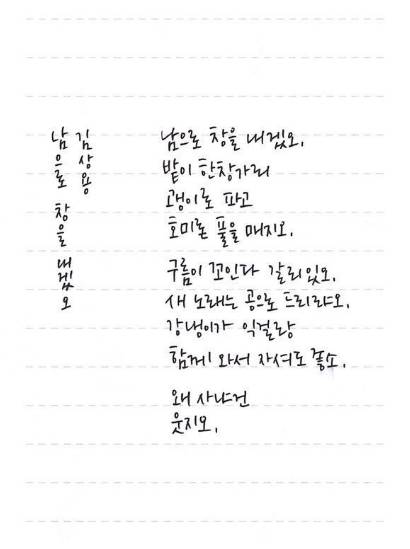 남으로 창을 내겠오
김상용
남으로 창을 내겠오.
밭이 한창가리
괭이로 파고
호미론 풀을 매지오.
구름이 꼬인다 갈리있오.
새 노래는 공으로 드리랴오.
강냉이가 익걸랑
함께 와서 자셔도 좋소.
왜 사냐건
웃지오.